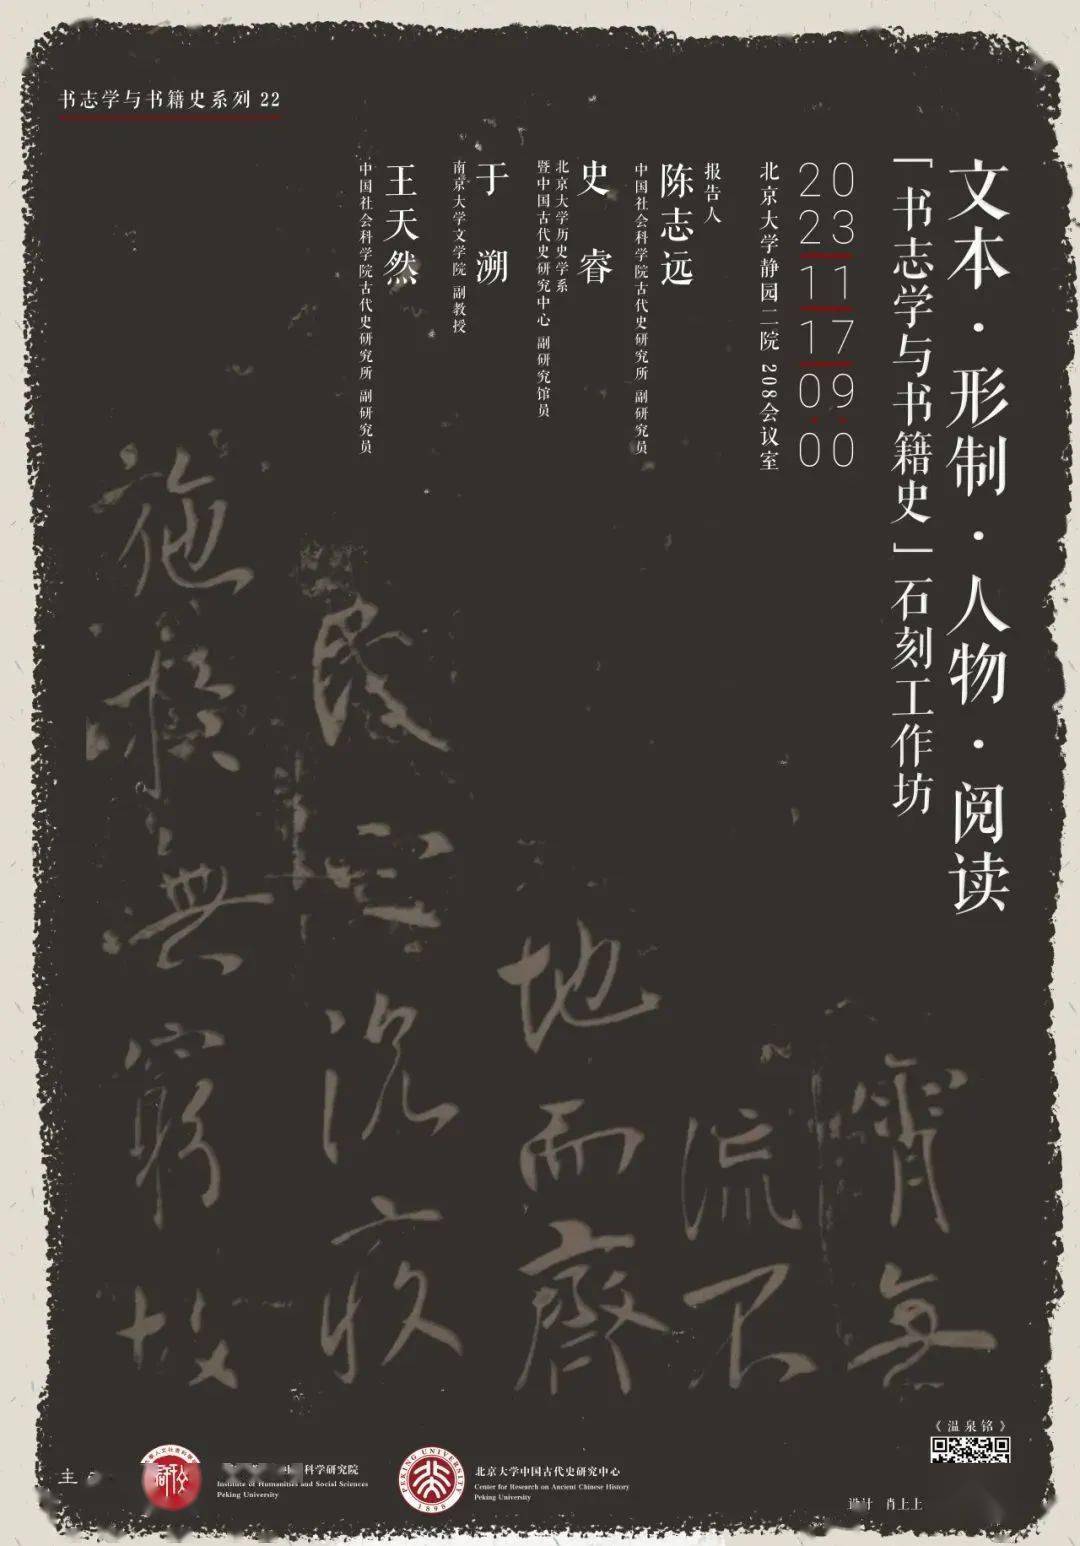 书志学与书籍史系列 22
文本·形制·人物·阅读
「书志学与书籍史」石刻工作坊
2023
11
17
09:00
北京大学静园二院 208会议室
报告人
陈志远
中国社会科学院古代史研究所 副研究员
史睿
北京大学历史学系
暨中国古代史研究中心 副研究馆员
于溯
南京大学文学院 副教授
王天然
中国社会科学院古代史研究所 副研究员
霄無
流不
地而齊
民之沉疾
施無窮
《温泉铭》
主
科学研究院
Institute of Humanities and Social Sciences
Peking University
PEKING UNIVERSITY
1898
北京大学中国古代史研究中心
Center for Research on Ancient Chinese History
Peking University
设计 肖上上